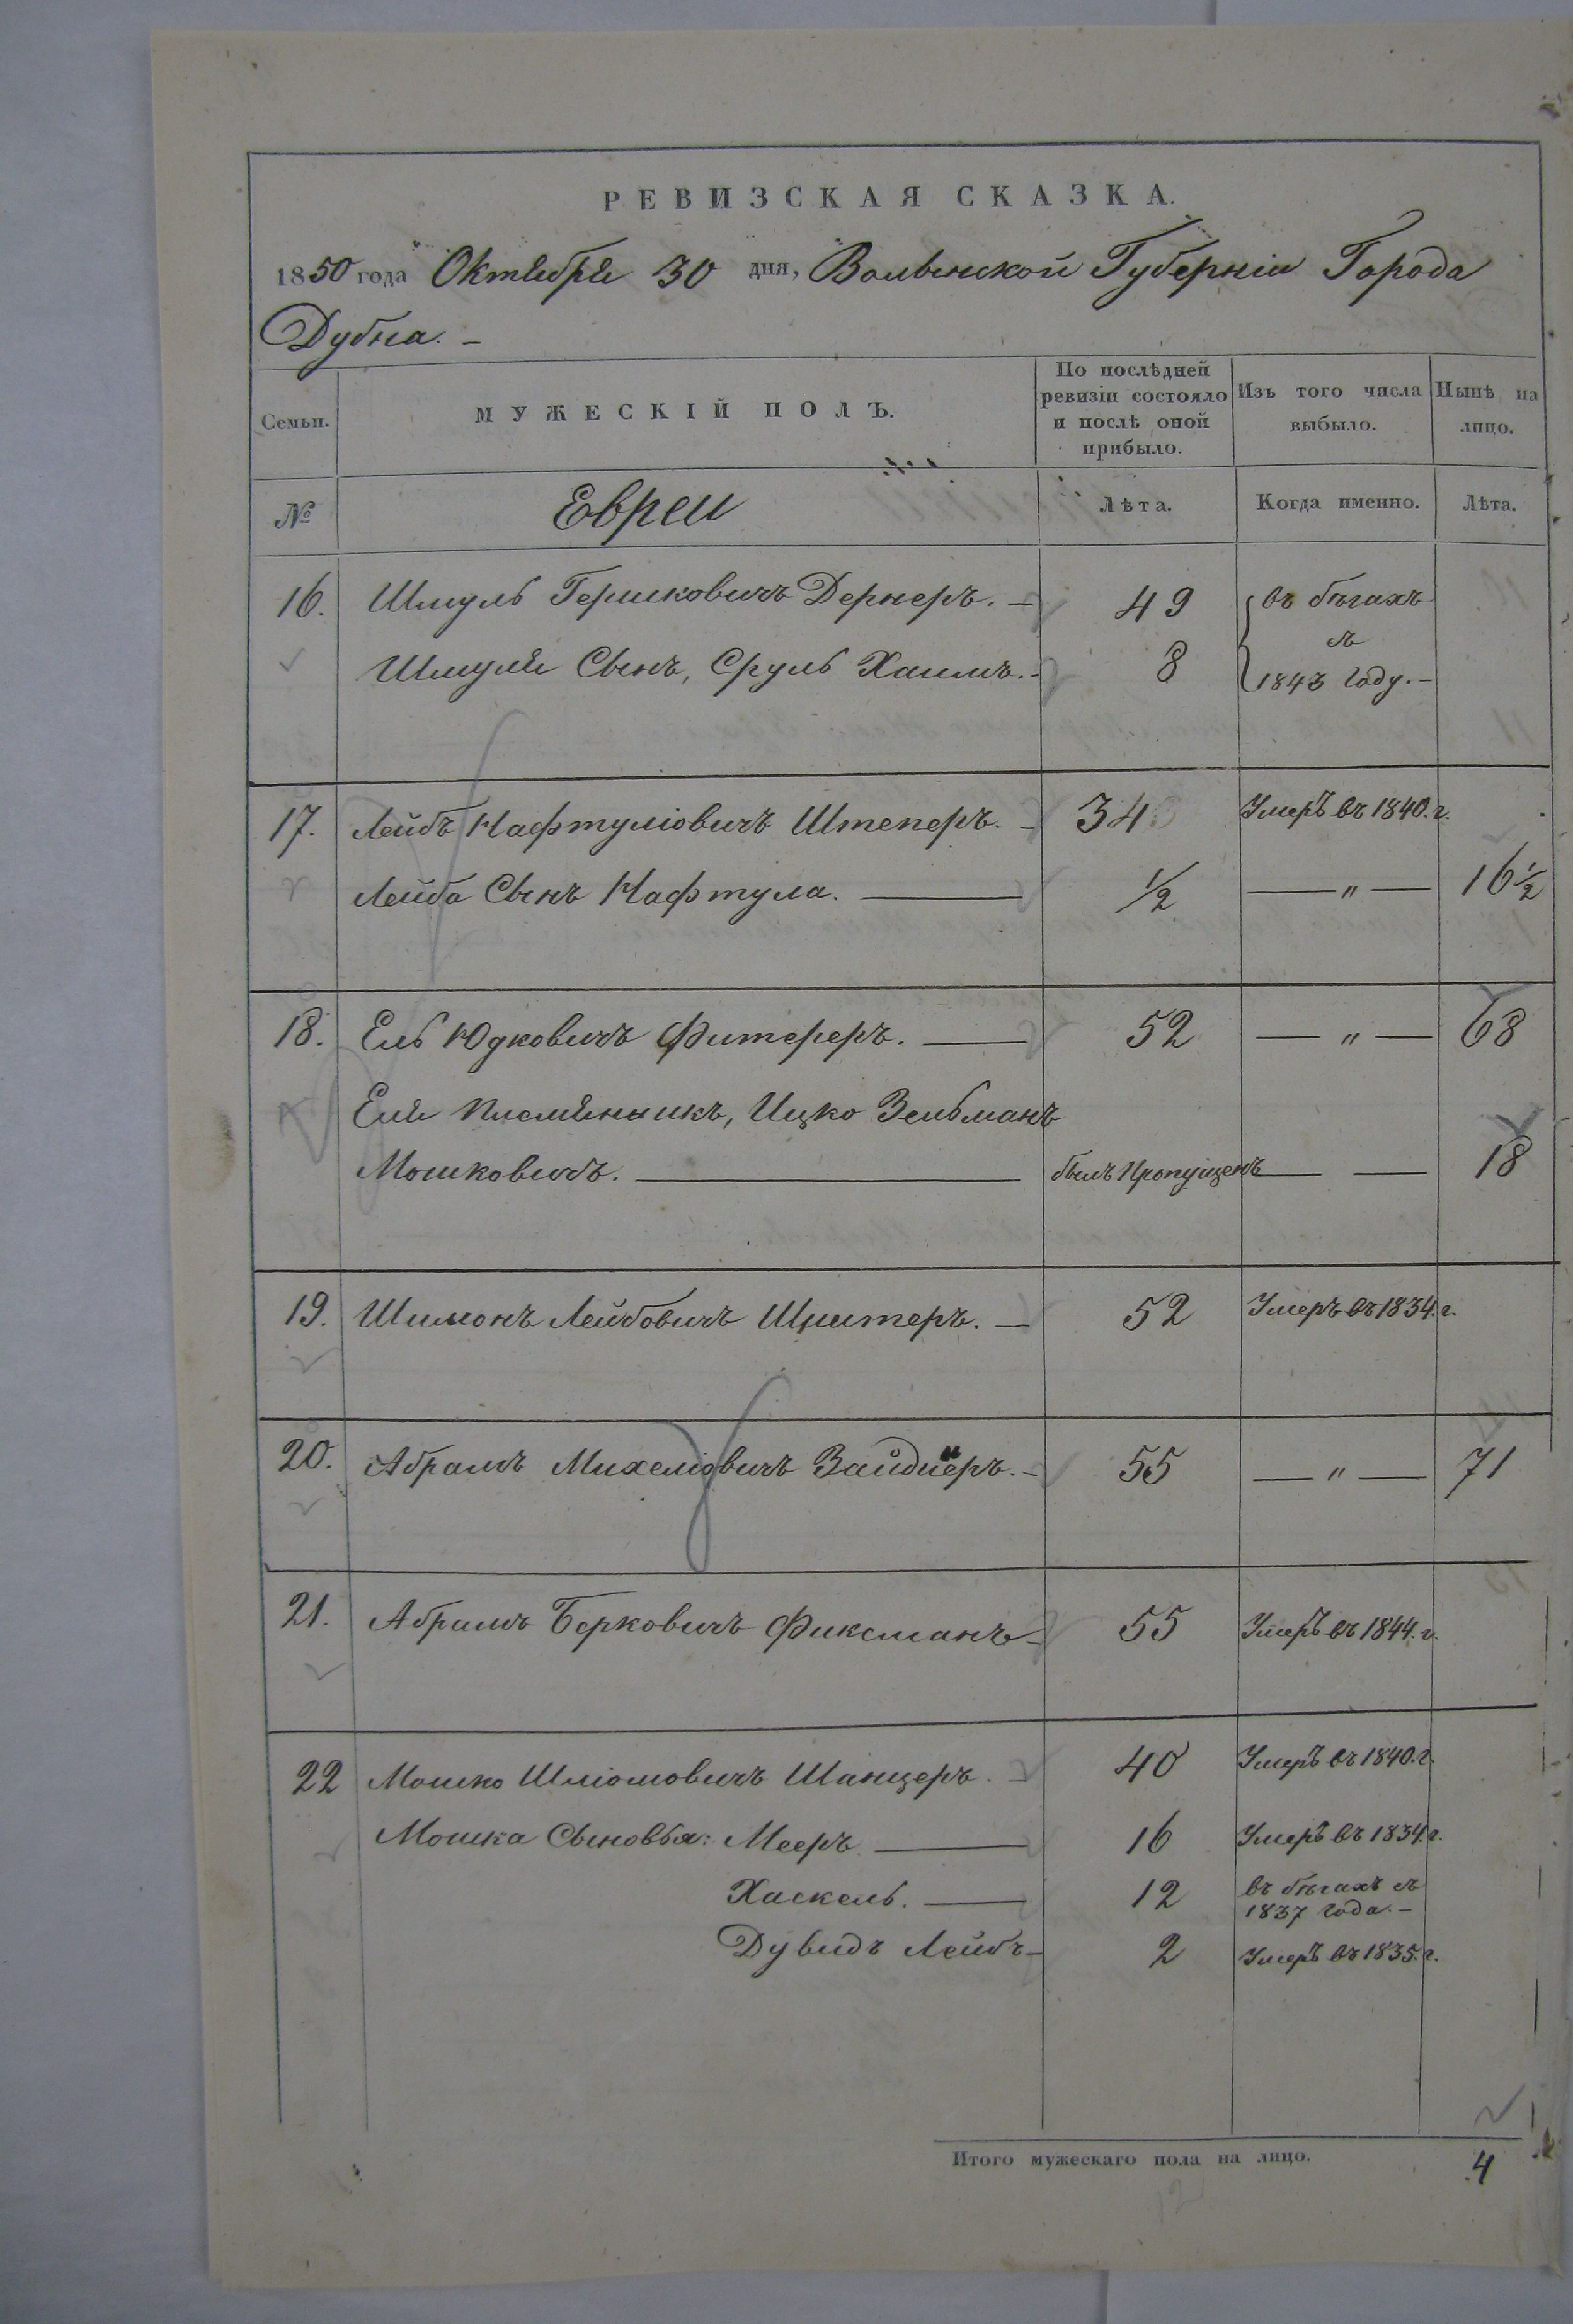 РЕВИЗСКАЯ СКАЗКА.
1850 года Октября 30 дня, Волынской Губерніи Города
Дубна. –
Семьи.
МУЖЕСКІЙ ПОЛЪ.
По послѣдней
ревизіи состояло
и послѣ оной
прибыло.
Изъ того числа
выбыло.
Нынѣ на
лицо.
№
Евреи
Лѣта.
Когда именно.
Лѣта.
16. Шмуль Гершковичъ Дернеръ. – 49 въ бѣгахъ
съ
Шмуля Сынъ, Сруль Хаимъ. – 8 1843 году. –
17. Лейбъ Нафтуліовичъ Штеперъ. – 34 Умеръ въ 1840. г.
Лейба Сынъ Нафтула. — ½ — " — 16 ½
18. Ель Юдковичъ Фитереръ. — 52 — " — 68
Еля племянникъ, Ицко Зельманъ
Мошковичъ. — былъ пропущенъ — — 18
19. Шимонъ Лейбовичъ Шпитеръ. — 52 Умеръ въ 1834. г.
20. Абрамъ Михеліовичъ Зайднеръ. – 55 — " — 71
21. Абрамъ Берковичъ Фиксманъ – 55 Умеръ въ 1844. г.
22 Мошко Шліомовичъ Шанцеръ. – 40 Умеръ въ 1840. г.
Мошка Сыновья: Мееръ — 16 Умеръ въ 1834. г.
Хаскель. — 12 въ бѣгахъ съ
1837 года. –
Дувидъ Лейбъ – 2 Умеръ въ 1835. г.
Итого мужескаго пола на лицо. 4